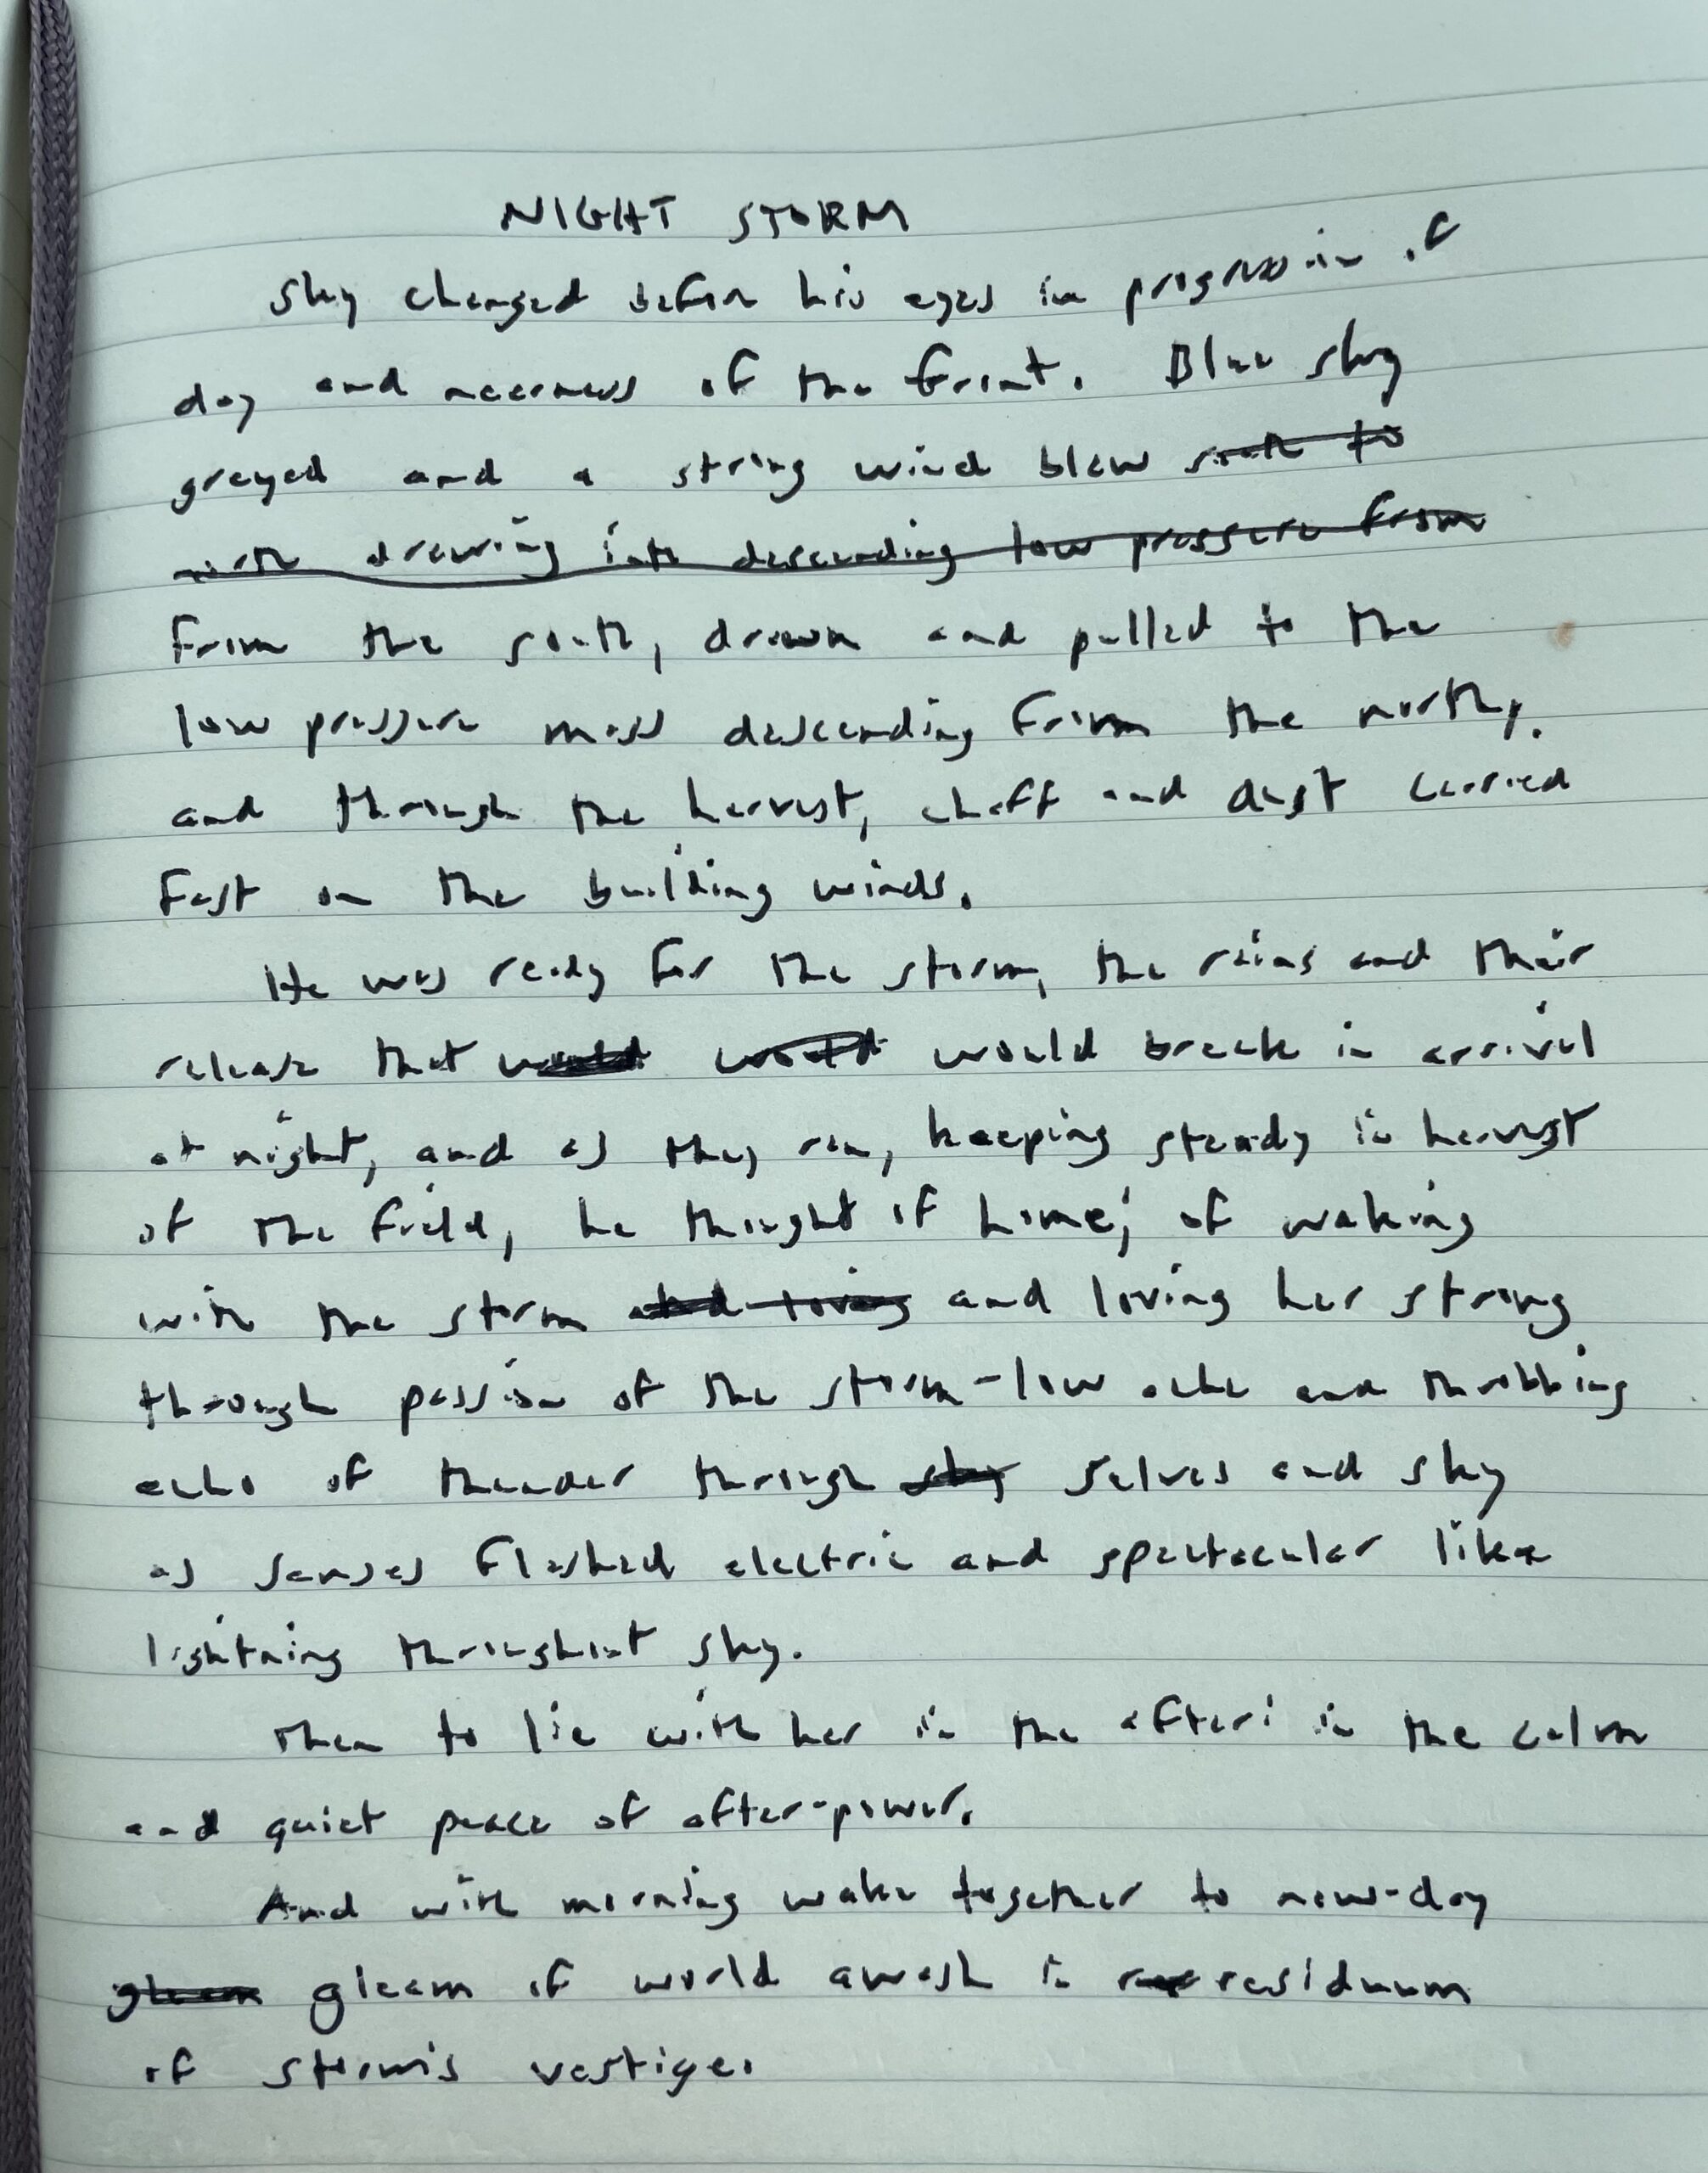 NIGHT STORM
Sky changed before his eyes in progression of
day and nearness of the front. Blue sky
greyed and a strong wind blew south to
north drawing into descending low pressure from
from the south, drawn and pulled to the
low pressure mass descending from the north,.
and through the harvest, chaff and dust carried
fast on the building winds.
He was ready for the storm, the rains and their
release that would would would break in arrival
at night, and as they ran, keeping steady in harvest
of the field, he thought of home; of waking
with the storm and loving and loving her strong
through passion of the storm-low ache and throbbing
echo of thunder through sky selves and sky
as senses flashed electric and spectacular like
lightning throughout sky.
Then to lie with her in the after; in the calm
and quiet peace of after-power.
And with morning wake together to new-day
gleam gleam of world awash in residuum
of storm's vestige.